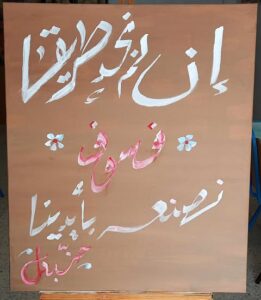 إن لم نجد طريقا
فسوف
نصنعه بأيدينا
حنبعل